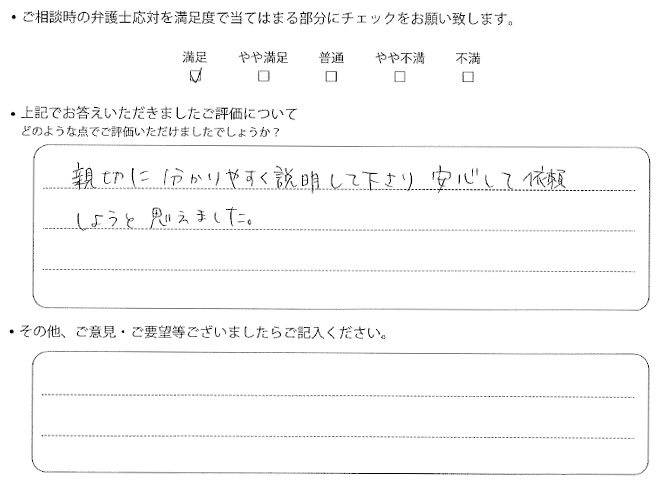 • ご相談時の弁護士応対を満足度で当てはまる部分にチェックをお願い致します。
満足 やや満足 普通 やや不満 不満
☑ □ □ □ □
• 上記でお答えいただきましたご評価について
どのような点でご評価いただけましたでしょうか？
親切に分かりやすく説明して下さり 安心して依頼
しようと思えました。
• その他、ご意見・ご要望等ございましたらご記入ください。